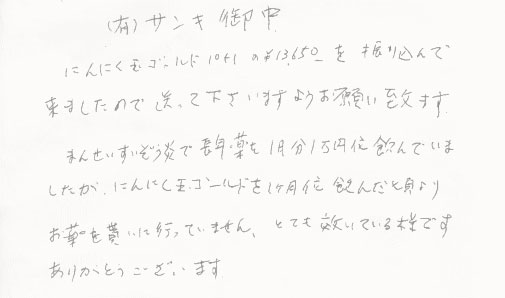 (有)サンキ御中
にんにく玉ゴールド10+1の¥13,650_を振り込んで
来ましたので送って下さいますようお願い致します
まんせいすいぞう炎で長年薬を1月分1万円位飲んでいま
したが、にんにく玉ゴールドを1ヶ月位飲んだ頃より
お薬を貰いに行っていません、とても効いている様です
ありがとうございます